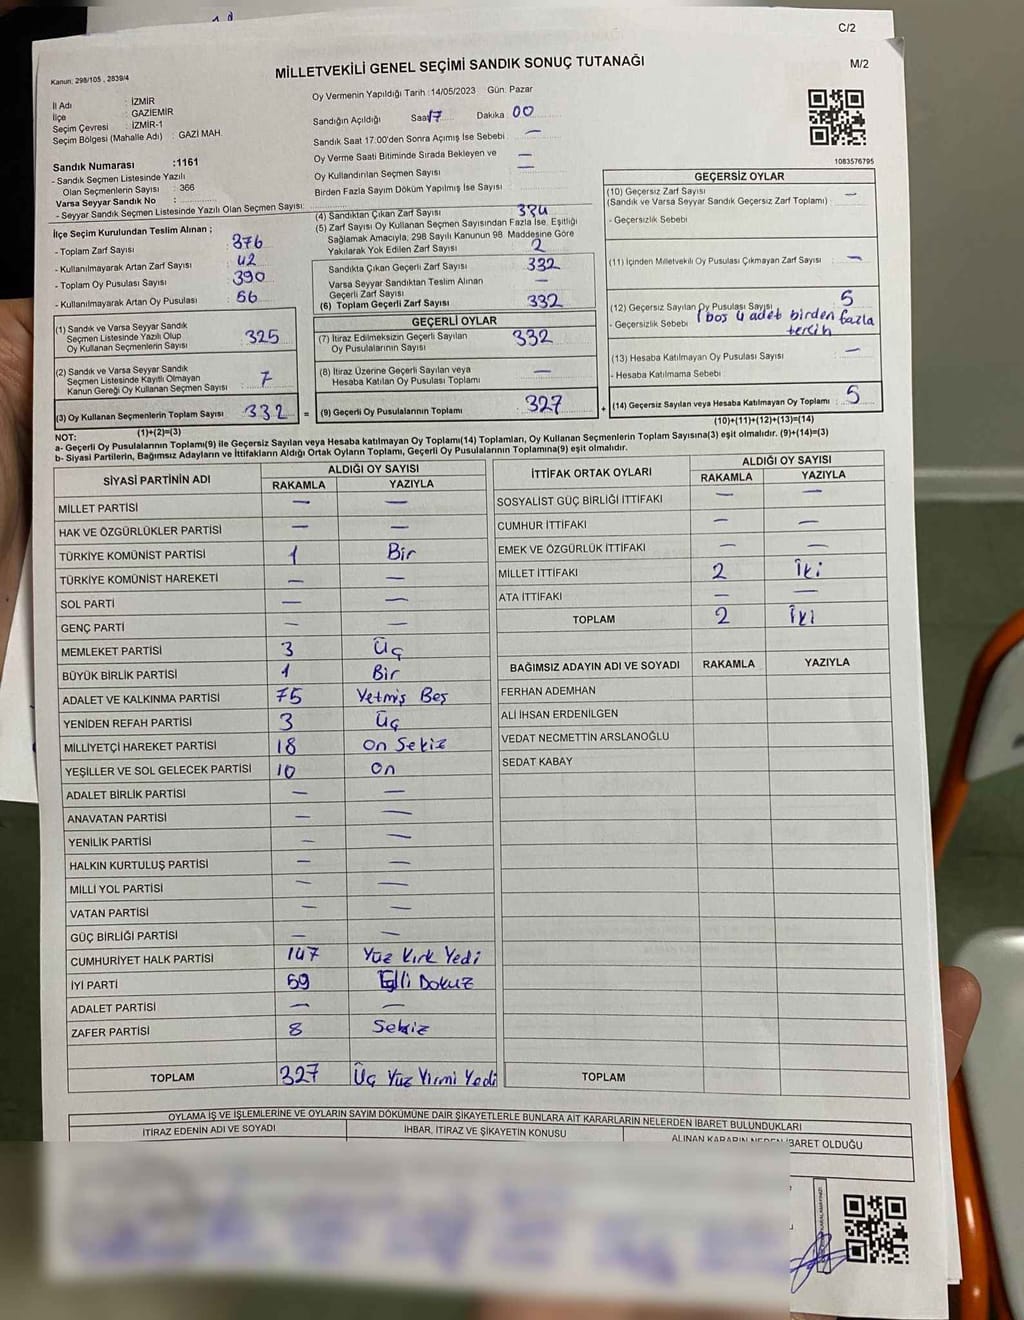 C/2
M/2
Kanun: 298/105 , 2839/4
MİLLETVEKİLİ GENEL SEÇİMİ SANDIK SONUÇ TUTANAĞI
İl Adı : İZMİR
İlçe : GAZİEMİR
Seçim Çevresi : İZMİR-1
Seçim Bölgesi (Mahalle Adı) : GAZİ MAH.
Sandık Numarası :1161
- Sandık Seçmen Listesinde Yazılı
Olan Seçmenlerin Sayısı : 366
Varsa Seyyar Sandık No :
- Seyyar Sandık Seçmen Listesinde Yazılı Olan Seçmen Sayısı:
Oy Vermenin Yapıldığı Tarih :14/05/2023 Gün. Pazar
Sandığın Açıldığı Saat 17 Dakika 00
Sandık Saat 17:00'den Sonra Açımış İse Sebebi —
Oy Verme Saati Bitiminde Sırada Bekleyen ve —
Oy Kullandırılan Seçmen Sayısı —
Birden Fazla Sayım Döküm Yapılmış İse Sayısı
1083576795
İlçe Seçim Kurulundan Teslim Alınan ;
- Toplam Zarf Sayısı : 376
- Kullanılmayarak Artan Zarf Sayısı : 42
- Toplam Oy Pusulası Sayısı : 390
- Kullanılmayarak Artan Oy Pusulası : 56
(1) Sandık ve Varsa Seyyar Sandık
Seçmen Listesinde Yazılı Olup
Oy Kullanan Seçmenlerin Sayısı : 325
(2) Sandık ve Varsa Seyyar Sandık
Seçmen Listesinde Kayıtlı Olmayan
Kanun Gereği Oy Kullanan Seçmen Sayısı : 7
(3) Oy Kullanan Seçmenlerin Toplam Sayısı : 332
(1)+(2)=(3)
(4) Sandıktan Çıkan Zarf Sayısı 334
(5) Zarf Sayısı Oy Kullanan Seçmen Sayısından Fazla İse, Eşitliği
Sağlamak Amacıyla, 298 Sayılı Kanunun 98. Maddesine Göre
Yakılarak Yok Edilen Zarf Sayısı 2
Sandıkta Çıkan Geçerli Zarf Sayısı 332
Varsa Seyyar Sandıktan Teslim Alınan
Geçerli Zarf Sayısı —
(6) Toplam Geçerli Zarf Sayısı 332
GEÇERLİ OYLAR
(7) İtiraz Edilmeksizin Geçerli Sayılan
Oy Pusulalarının Sayısı 332
(8) İtiraz Üzerine Geçerli Sayılan veya
Hesaba Katılan Oy Pusulası Toplamı —
= (9) Geçerli Oy Pusulalarının Toplamı 327
GEÇERSİZ OYLAR
(10) Geçersiz Zarf Sayısı —
(Sandık ve Varsa Seyyar Sandık Geçersiz Zarf Toplamı)
- Geçersizlik Sebebi
(11) İçinden Milletvekili Oy Pusulası Çıkmayan Zarf Sayısı : —
(12) Geçersiz Sayılan Oy Pusulası Sayısı 5
- Geçersizlik Sebebi 1 boş 4 adet birden fazla
tercih
(13) Hesaba Katılmayan Oy Pusulası Sayısı —
- Hesaba Katılmama Sebebi
+ (14) Geçersiz Sayılan veya Hesaba Katılmayan Oy Toplamı : 5
(10)+(11)+(12)+(13)=(14)
NOT:
a- Geçerli Oy Pusulalarının Toplamı(9) ile Geçersiz Sayılan veya Hesaba katılmayan Oy Toplamı(14) Toplamları, Oy Kullanan Seçmenlerin Toplam Sayısına(3) eşit olmalıdır. (9)+(14)=(3)
b- Siyasi Partilerin, Bağımsız Adayların ve İttifakların Aldığı Ortak Oyların Toplamı, Geçerli Oy Pusulalarının Toplamına(9) eşit olmalıdır.
SİYASİ PARTİNİN ADI ALDIĞI OY SAYISI
RAKAMLA YAZIYLA
MİLLET PARTİSİ — —
HAK VE ÖZGÜRLÜKLER PARTİSİ — —
TÜRKİYE KOMÜNİST PARTİSİ 1 Bir
TÜRKİYE KOMÜNİST HAREKETİ — —
SOL PARTİ — —
GENÇ PARTİ — —
MEMLEKET PARTİSİ 3 Üç
BÜYÜK BİRLİK PARTİSİ 1 Bir
ADALET VE KALKINMA PARTİSİ 75 Yetmiş Beş
YENİDEN REFAH PARTİSİ 3 Üç
MİLLİYETÇİ HAREKET PARTİSİ 18 On Sekiz
YEŞİLLER VE SOL GELECEK PARTİSİ 10 On
ADALET BİRLİK PARTİSİ — —
ANAVATAN PARTİSİ — —
YENİLİK PARTİSİ — —
HALKIN KURTULUŞ PARTİSİ — —
MİLLİ YOL PARTİSİ — —
VATAN PARTİSİ — —
GÜÇ BİRLİĞİ PARTİSİ — —
CUMHURİYET HALK PARTİSİ 147 Yüz Kırk Yedi
İYİ PARTİ 59 Elli Dokuz
ADALET PARTİSİ — —
ZAFER PARTİSİ 8 Sekiz
TOPLAM 327 Üç Yüz Yirmi Yedi
İTTİFAK ORTAK OYLARI ALDIĞI OY SAYISI
RAKAMLA YAZIYLA
SOSYALİST GÜÇ BİRLİĞİ İTTİFAKI — —
CUMHUR İTTİFAKI — —
EMEK VE ÖZGÜRLÜK İTTİFAKI — —
MİLLET İTTİFAKI 2 İki
ATA İTTİFAKI — —
TOPLAM 2 İki
BAĞIMSIZ ADAYIN ADI VE SOYADI RAKAMLA YAZIYLA
FERHAN ADEMHAN
ALİ İHSAN ERDENİLGEN
VEDAT NECMETTİN ARSLANOĞLU
SEDAT KABAY
TOPLAM
OYLAMA İŞ VE İŞLEMLERİNE VE OYLARIN SAYIM DÖKÜMÜNE DAİR ŞİKAYETLERLE BUNLARA AİT KARARLARIN NELERDEN İBARET BULUNDUKLARI
İTİRAZ EDENİN ADI VE SOYADI İHBAR, İTİRAZ VE ŞİKAYETİN KONUSU ALINAN KARARIN NEDEN İBARET OLDUĞU